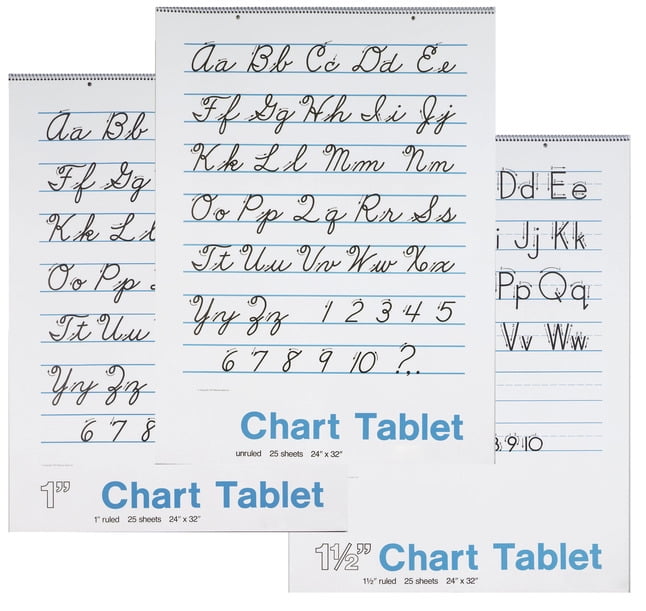 Aa Bb Cc Dd Ee
Ff Gg Hh Ii Jj
Kk Ll Mm Nn
Oo Pp Qq Rr Ss
Tt Uu Vv Ww Xx
Yy Zz 1 2 3 4 5
6 7 8 9 10 ?.,
Chart Tablet
unruled 25 sheets 24" x 32"
Aa Bb
Ff Gg
Kk Ll
Oo Pp
Tt Uu
Yy Zz
6 7 8
1" Chart Tablet
1" ruled 25 sheets 24" x 32"
Dd Ee
i Jj Kk
Pp Qq
Vv Ww
9 10
1½" Chart Tablet
1½" ruled 25 sheets 24" x 32"